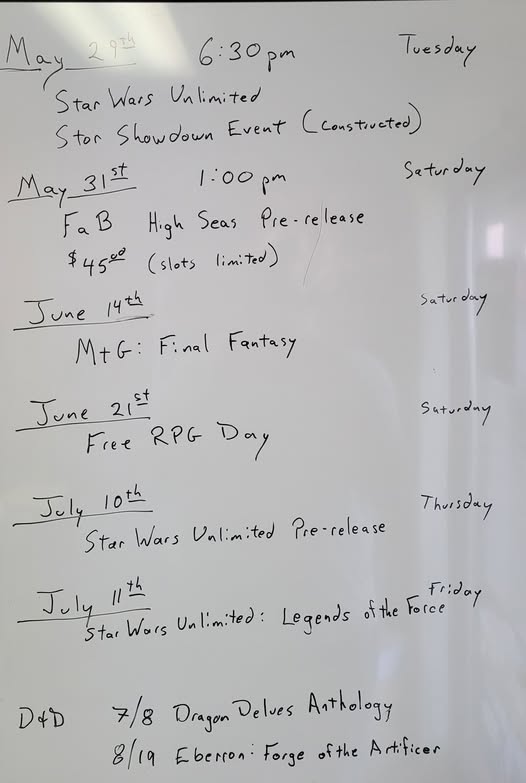 May 29th 6:30 pm Tuesday
Star Wars Unlimited
Star Showdown Event (Constructed)
May 31st 1:00 pm Saturday
FaB High Seas Pre-release
$45.00 (slots limited)
June 14th Saturday
MtG: Final Fantasy
June 21st Saturday
Free RPG Day
July 10th Thursday
Star Wars Unlimited Pre-release
July 11th Friday
Star Wars Unlimited: Legends of the Force
D&D 7/8 Dragon Delves Anthology
8/19 Eberron: Forge of the Artificer